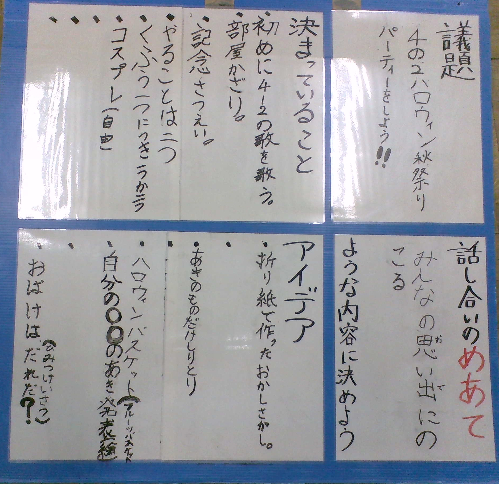 議題
4の2ハロウィン秋祭り
パーティーをしよう!!
決まっていること
・初めに4-2の歌を歌う。
・部屋かざり。
・記念さつえい。
・やることは二つ
・くふう一つにつき
・コスプレ(自由)
話し合いのめあて
みんなの思い出にの
こる
ような内容に決めよう
アイデア
・折り紙で作ったおかしさがし。
・あきのものだけしりとり
・ハロウィンバスケット(フルーツバスケット)
・自分の〇〇のあき発表
・おばけはだれだ?